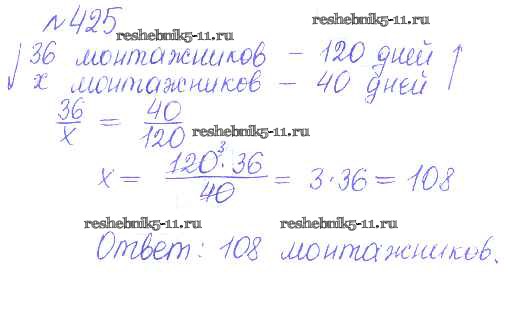 №425
reshebnik5-11.ru reshebnik5-11.ru
↓ 36 монтажников – 120 дней ↑
x монтажников – 40 дней
36/x = 40/120 reshebnik5-11.ru
x = 120³·36/40 = 3·36 = 108
reshebnik5-11.ru reshebnik5-11.ru
Ответ: 108 монтажников.